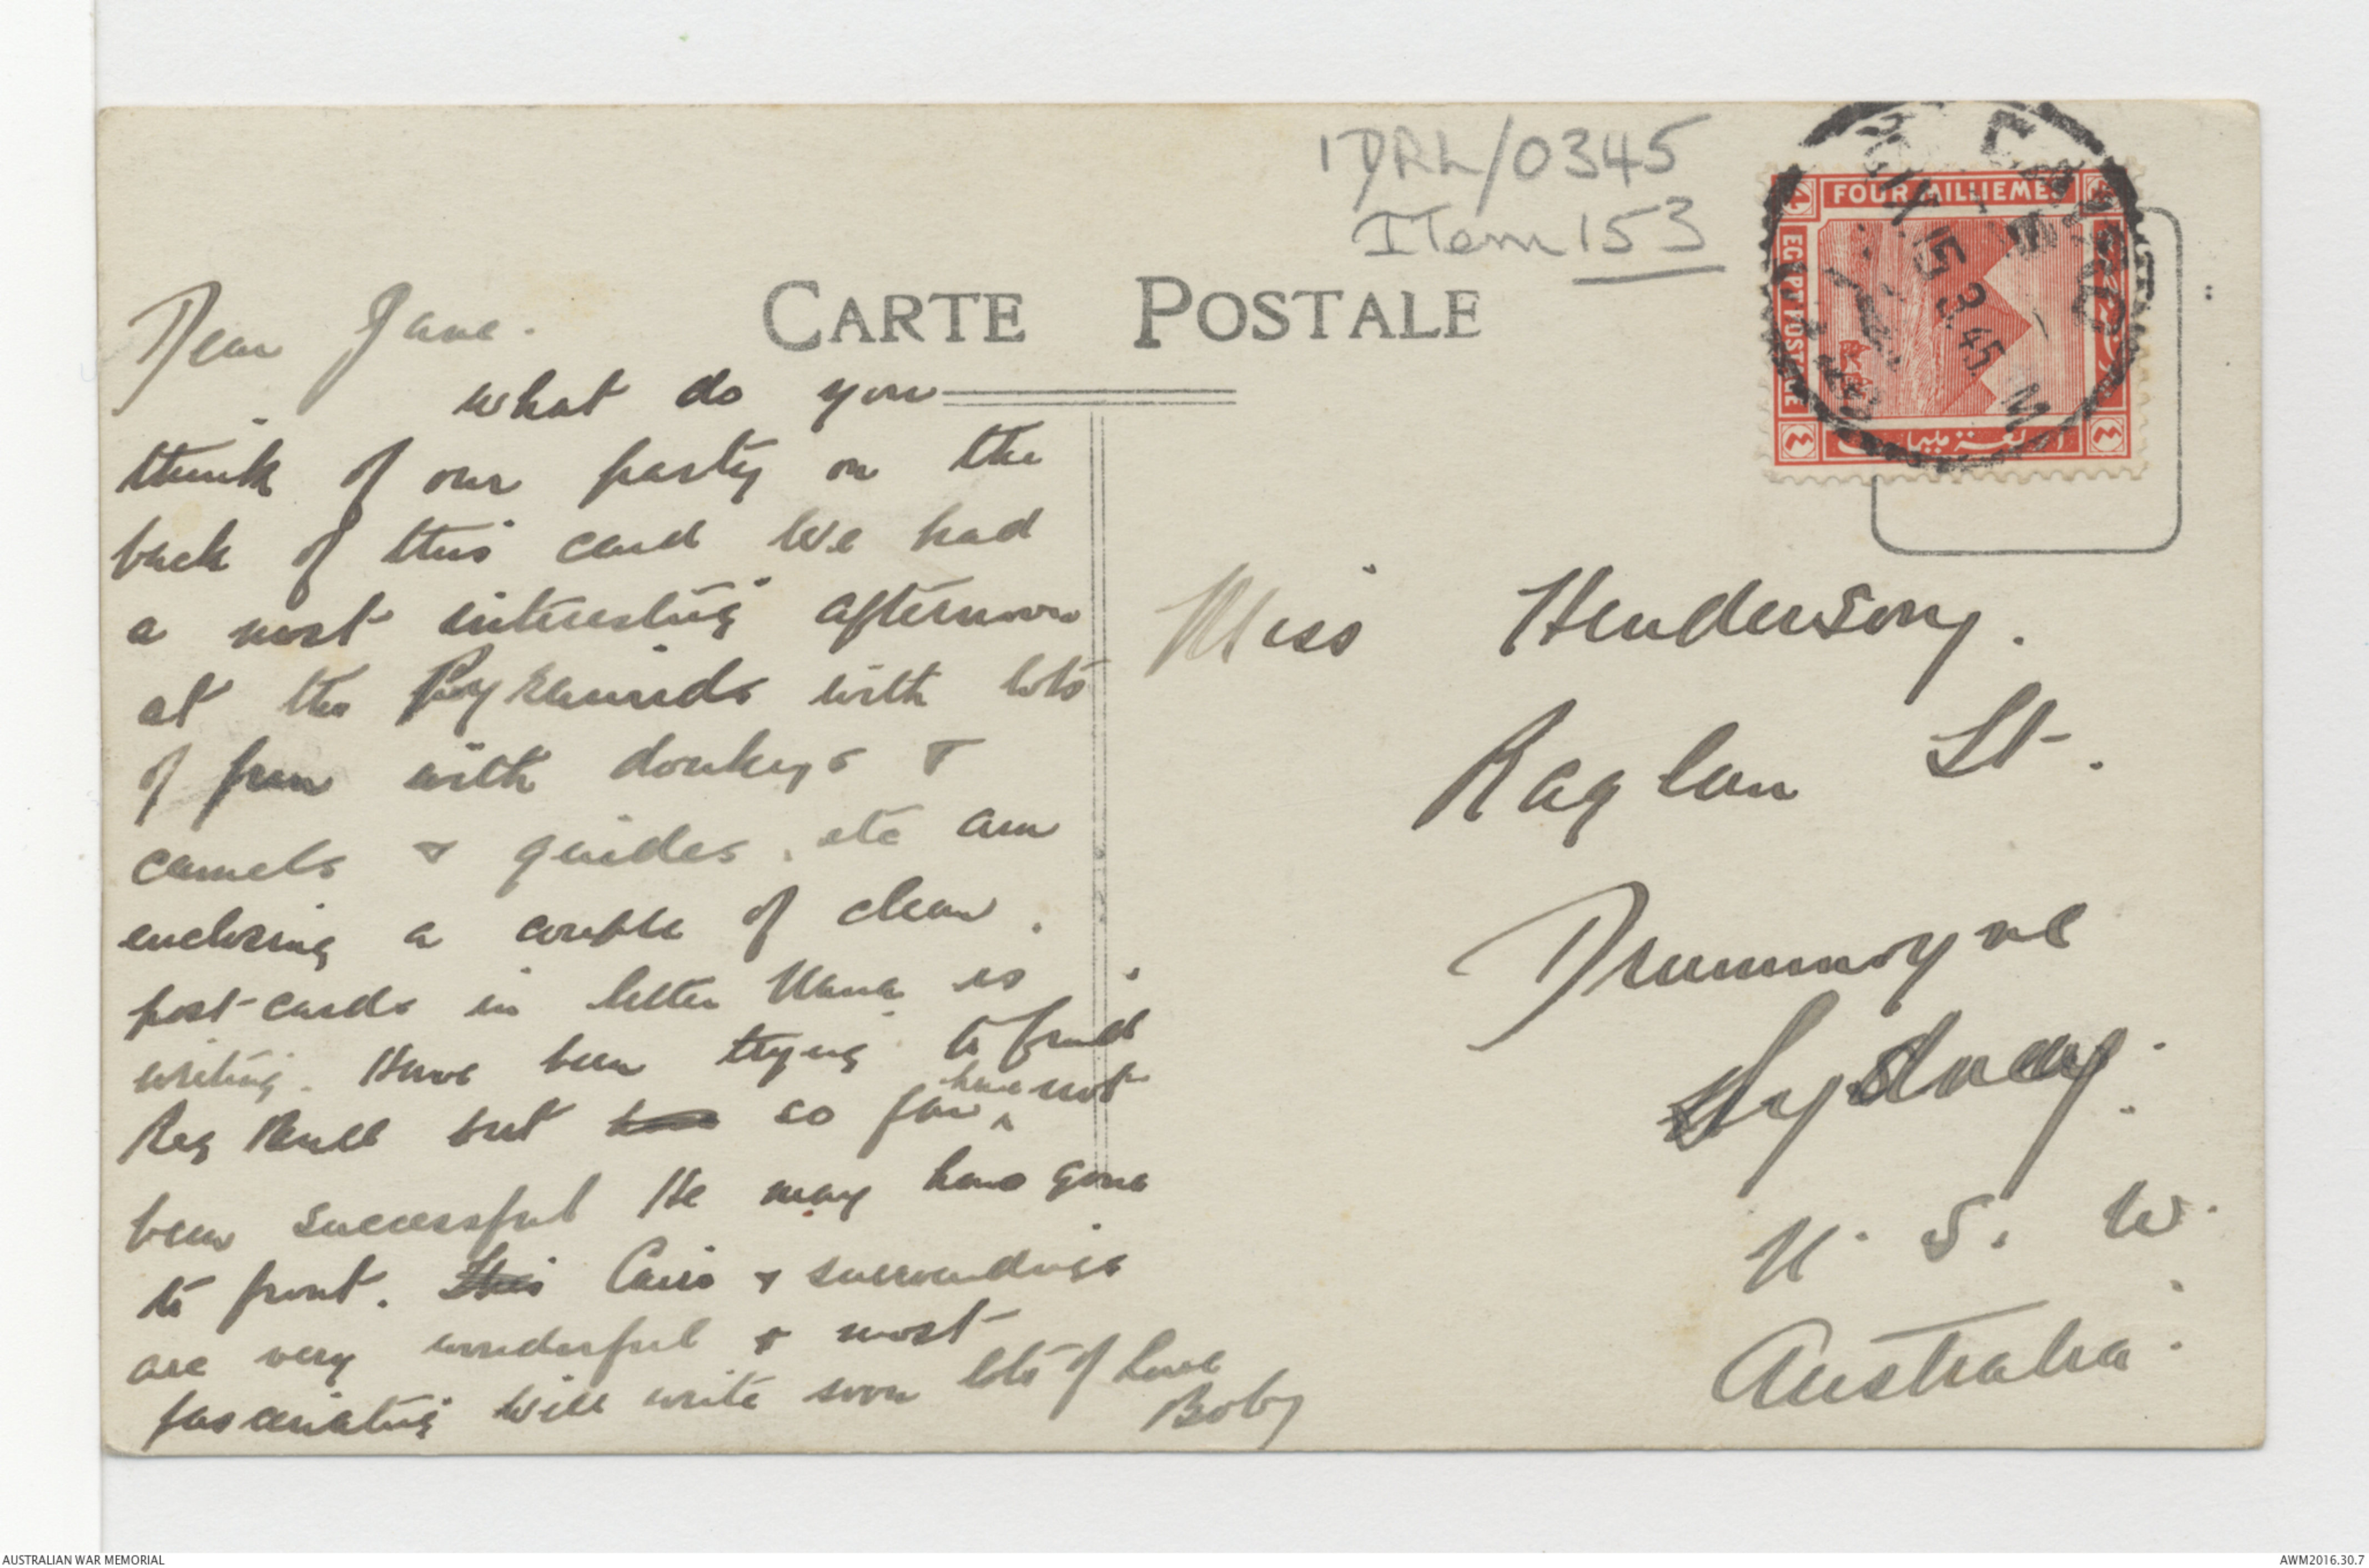 1DRL/0345
Item 153
CARTE POSTALE
FOUR MILLIEMES
EGYPT POSTAGE
CAIRO
IX. 15 3.45 M
Dear Jane.
what do you
think of our party on the
back of this card We had
a most interesting afternoon
at the Pyramids with lots
of fun with donkeys &
camels & guides, etc am
enclosing a couple of clean
post-cards in letter Nana is
writing. Have been trying to find
Reg but so far have not
been successful He may have gone
to front. This Cairo & surroundings
are very wonderful & most
fascinating will write soon lots of love
Boby
Miss Henderson.
Raglan St.
Drummoyne
Sydney.
N. S. W.
Australia.
AUSTRALIAN WAR MEMORIAL
AWM2016.30.7